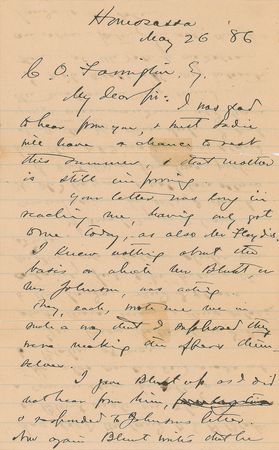 Homosassa
May 26 '86
C. O. Farrington, Esq.
My dear Sir: I was glad
to hear from you, & trust Sadie
will have a chance to rest
this summer, & that mother
is still improving.
Your letter was long in
reaching me, having only got
here today, as also Mr Floyd's.
I knew nothing about the
basis on which Mr Blunt or
Mr Johnson, was acting.
They, each, wrote me in
such a way that I supposed they
were making the offers them
selves.
I gave Blunt up, as I did
not hear from him,
& responded to Johnson's letter.
Now again Blunt writes that he